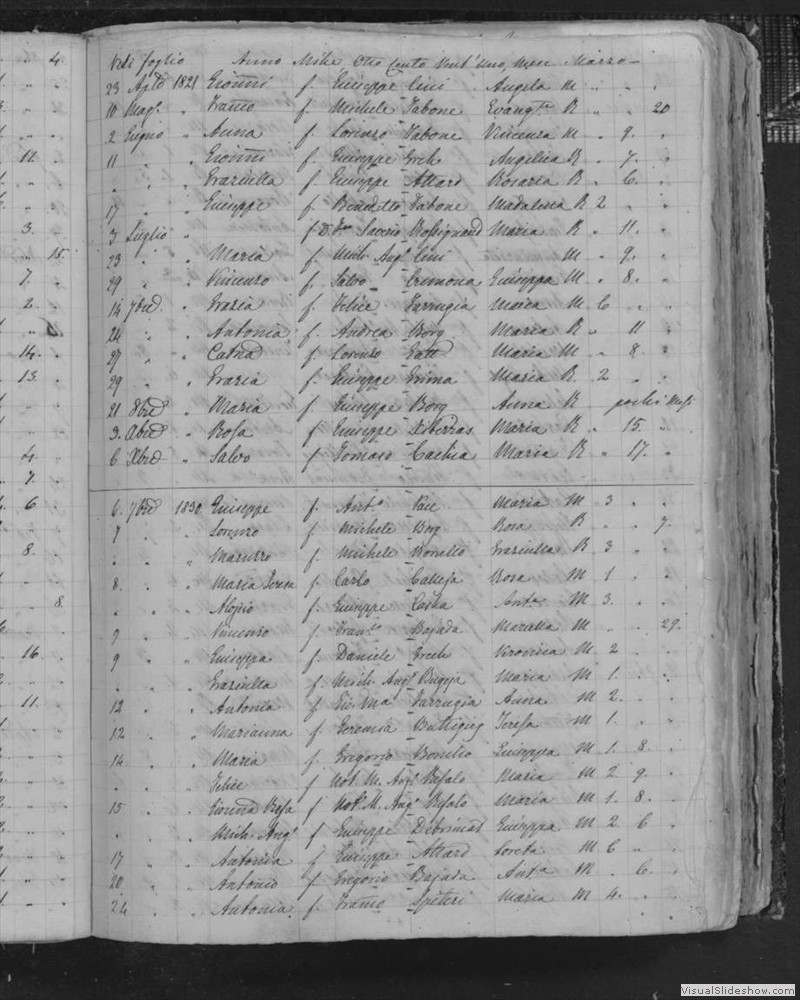 4.
Vedi foglio Anno Mille Otto Cento Vent'uno, mese Marzo
23 Aple 1821 Gionni f. Giuseppe Cini Angela M
10 Mago. Franco f. Michele Vabone Evangta R 20
2 Giugno Anna f. Lorenzo Vabone Vincenza M 9.
11. 11 Gionni f. Giuseppe Grech Angelica R 7.
Graziulla f. Giuseppe Attard Rosaria R 6.
17 Giuseppe f. Benedetto Vabone Madalena R 2
3. 3 Luglio f. Saverio Rossignaud Maria R 11.
15. 23 Maria f. Mich. Ang. Cini M 9.
7. 29 Vincenzo f. Salvo Cremona Giuseppa M 8.
2. 14 7bre Grazia f. Felice Farrugia Maria M 6
24 Antonia f. Andrea Borg Maria R 11
14. 27 Catna f. Lorenzo Maria M 8
13. 29 Grazia f. Giuseppe Grima Maria R. 2
21 8bre Maria f. Giuseppe Borg Anna R pochi mesi
3. 9bre Rosa f. Giuseppe Xiberras Maria R 15.
4. 6 Xbre Salvo f. Tomaso Cachia Maria R 17.
7.
6 6. 7bre 1830 Giuseppe f. Anto. Pace Maria M 3
7 Lorenzo f. Michele Borg Rosa R 7.
8. Maruzzo f. Michele Bonello Graziulla R 3
8. Maria Teresa f. Carlo Calleja Rosa M 1
8. Aloisio f. Giuseppe Anta M 3.
9 Vincenzo f. Franco Bajada Marietta M 29.
16. 9 Giuseppa f. Daniele Grech Veronica M 2
Graziulla f. Mich. Ang. Bugeja Maria M 1.
11. 12 Antonia f. Gio Ma Farrugia Anna M 2.
12 Marianna f. Geremia Buttigieg Teresa M 1.
14 Maria f. Gregorio Bonello Giuseppa M 1. 8.
Felice f. Not. M. Ang. Refalo Maria M 2 9.
15 Rosa f. Not. M. Ang. Refalo Maria M 1. 8.
Mich. Ang. f. Giuseppe Debrincat Giuseppa M 2 6
17 Antonia f. Giuseppe Attard Loreta M 6
20 Antonio f. Gregorio Bajada Anta M 6.
24 Antonia f. Franco Spiteri Maria M 4.
VisualSlideshow.com